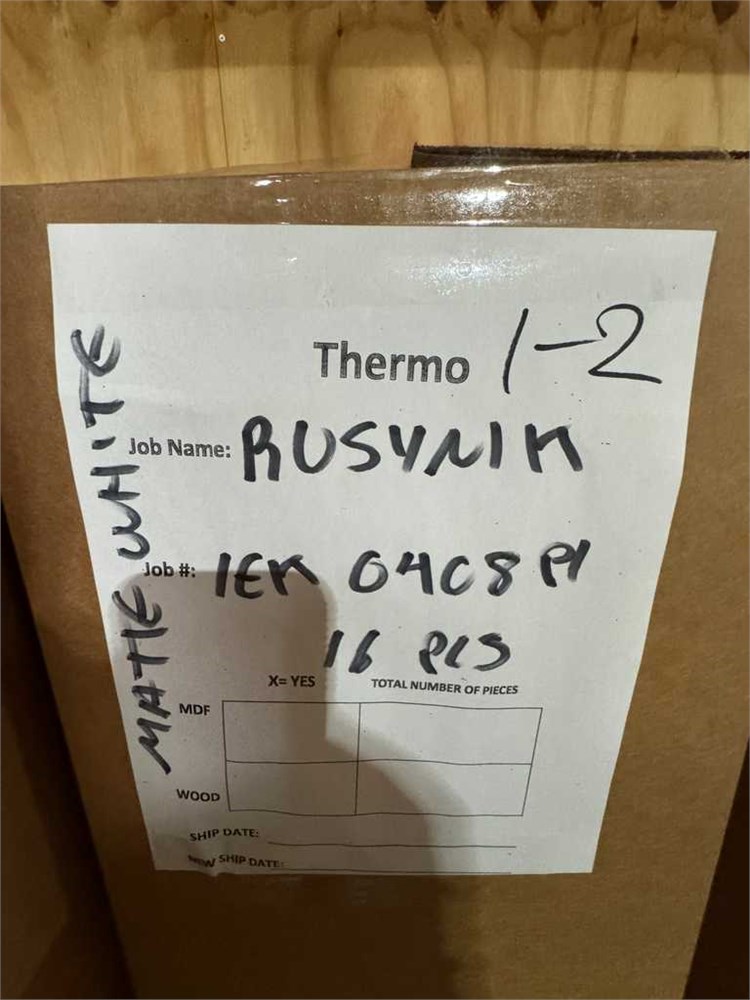 Thermo 1-2
Job Name: RUSYNIK
Job #: IEK 0408 P1
16 PCS
MATTE WHITE
X= YES TOTAL NUMBER OF PIECES
MDF
WOOD
SHIP DATE:
NEW SHIP DATE: